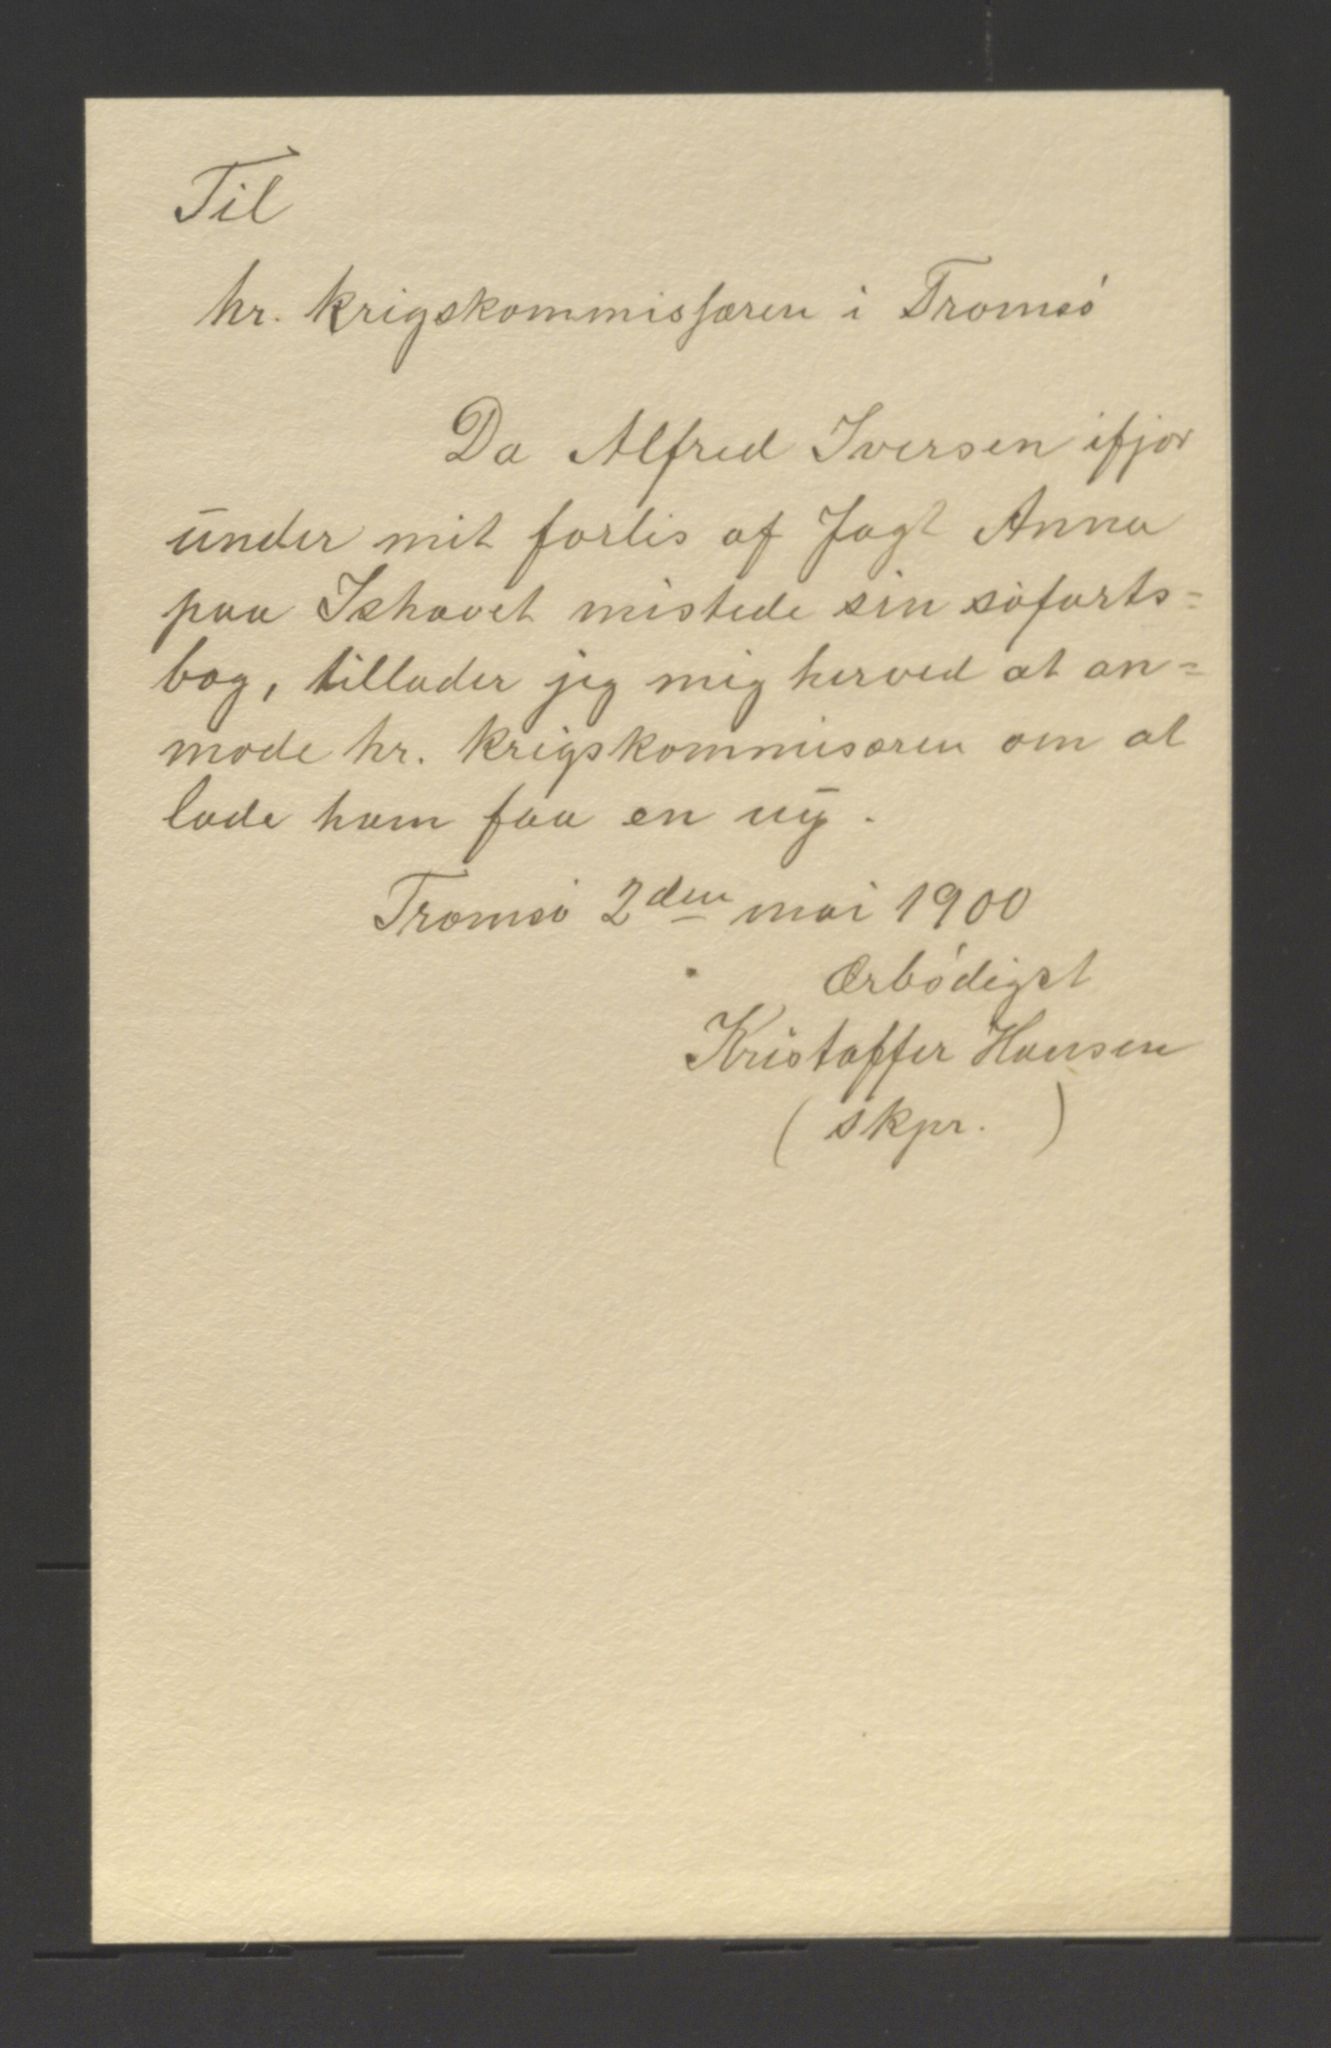 Til
hr. krigskommissæren i Tromsö
Da Alfred Iversen ifjor
under mit forlis af Jagt Anna
paa Ishavet mistede sin söfarts=
bog, tillader jeg mig herved at an=
mode hr. krigskommisæren om at
lade ham faa en ny.
Tromsö 2den mai 1900
Ærbödigst
Kristoffer Hansen
( skpr. )